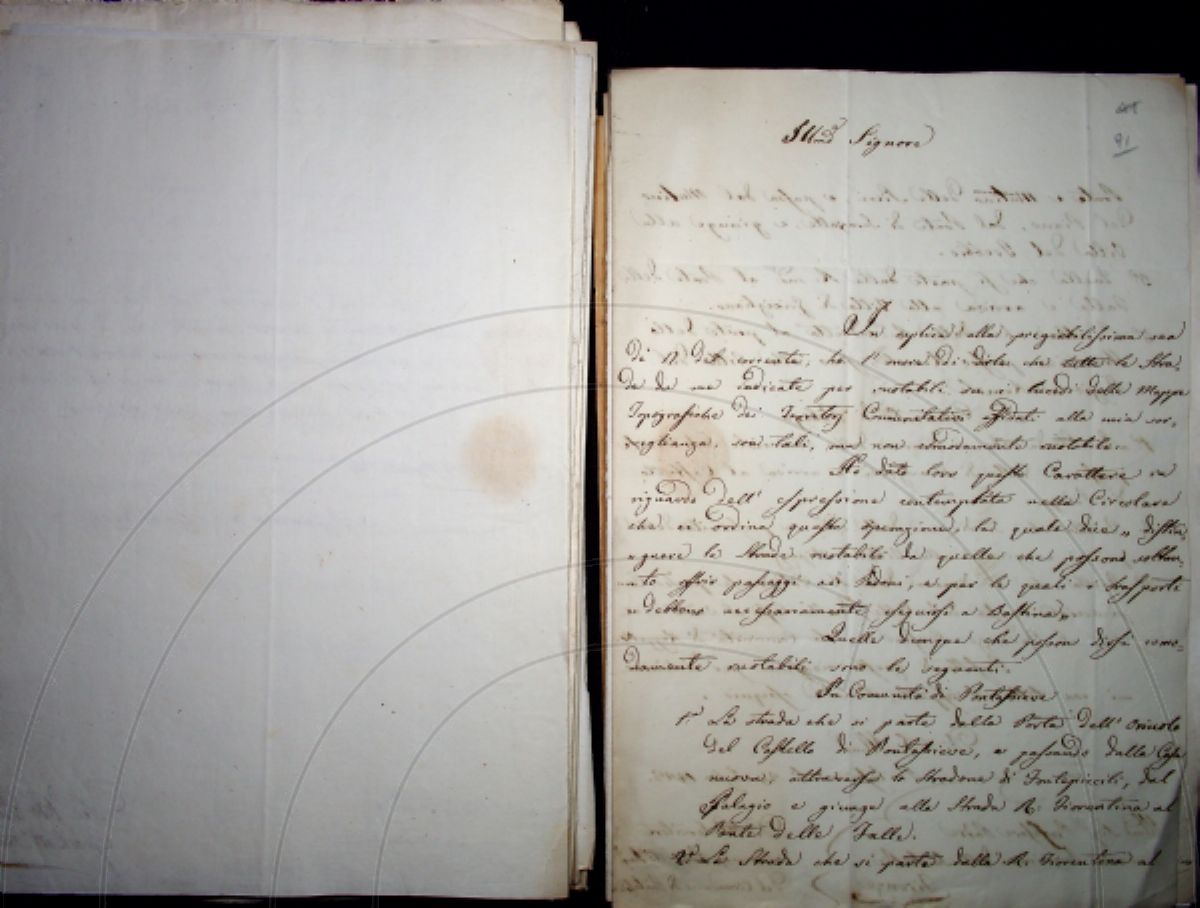 91
Ill.mo Signore
In replica alla pregiatissima sua
de 12 del corrente, ho l'onore di dirle che tutte le Stra-
de da me indicate per rotabili sui lucidi delle Mappe
Topografiche dei Territorj Comunitativi affidati alla mia sor-
veglianza, son tali, ma non comodamente rotabile.
Ho dato loro questo Carattere in
riguardo dell' espressione contemplata nella Circolare
che ci ordina questa operazione, la quale dice „ distin-
„guere le Strade rotabili da quelle che possono soltan-
to offrir passaggi ai Pedoni, e per le quali i trasporti
„ debbono necessariamente eseguirsi a Bastina„.
Quelle dunque che posson dirsi como-
damente rotabili sono le seguenti.
In Comunità di Pontassieve
1.a La strada che si parte dalla Porta dell' Oriuolo
del Castello di Pontassieve, e passando dalla Casa
nuova, attraversa lo Stradone di
Palagio e giunge alla Strada R. Fiorentina al
Ponte delle Falle.
2.a La Strada che si parte dalla R. Fiorentina al